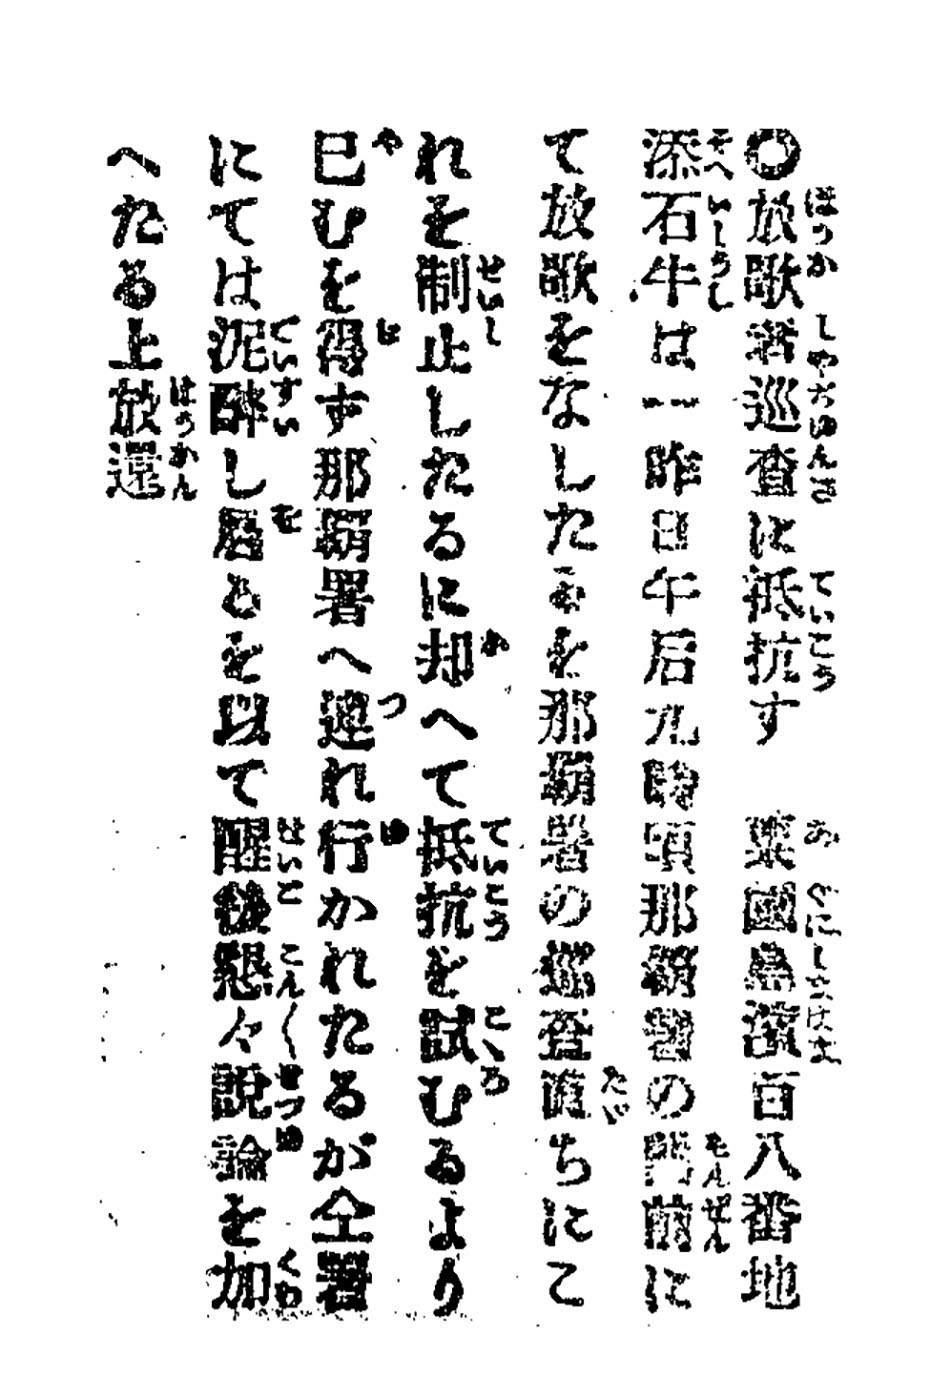 〇放歌者巡査に抵抗す　粟國島濱百八番地
添石牛は一昨日午后九時頃那覇署の門前に
て放歌をなしたるを那覇署の巡査直ちにこ
れを制止したるに却へて抵抗を試むるより
已むを得ず那覇署へ連れ行かれたるが仝署
にては泥酔し居るを以て醒後懇々説諭を加
へたる上放還